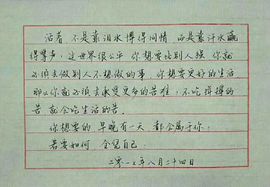 活着 不是靠泪水博得同情 而是靠汗水赢
得掌声，这世界很公平 你想要比别人强 你就
必须去做别人不想做的事，你想要更好的生活
那么你就必须去承受更多的苦难，不吃拼搏的
苦 就会吃生活的苦。
你想要的 早晚有一天 都会属于你，
若要如何 全凭自己。
二零一七年八月二十四日